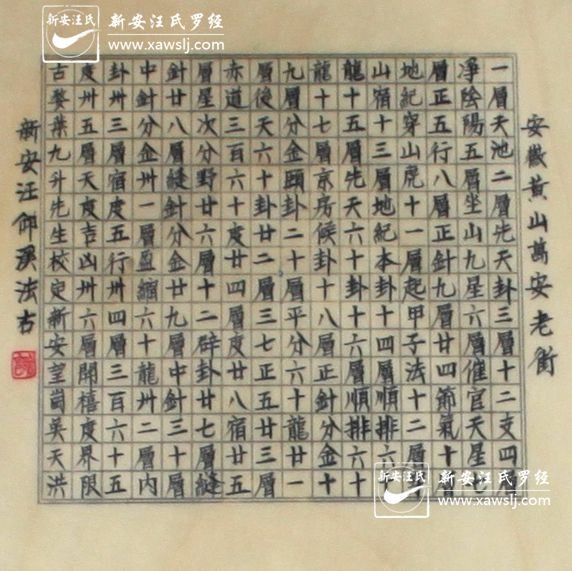 新安汪氏罗经
www.xawslj.com
安徽黃山萬安老街
一層天池二層先天卦三層十二支四
淨陰陽五層坐山九星六層催官天星
層正五行八層正針九層廿四節氣十
地紀穿山虎十一層起甲子法十二
山宿十三層地紀本卦十四層順排六
龍十五層先天十卦十六層順排六十
龍十七層京房候卦十八層正針分金十
九層分金頤卦二十層平分六十龍廿一
層後天六十卦廿二層三七正五十廿三層
赤道三百六十度廿四層度七廿八宿廿五
層星次分野廿六層十二辟卦廿七層縫
針廿八層縫針分金廿九層中針三十層
中針分金卅一層盈縮六十龍卅二層內
卦卅三層宿度五行卅四層三百六十五
度卅五層天度吉凶卅六層開禧度界限
古婺葉九升先生校定新安望崗吳天洪
新安汪仰溪法古
新安汪氏罗经
www.xawslj.com